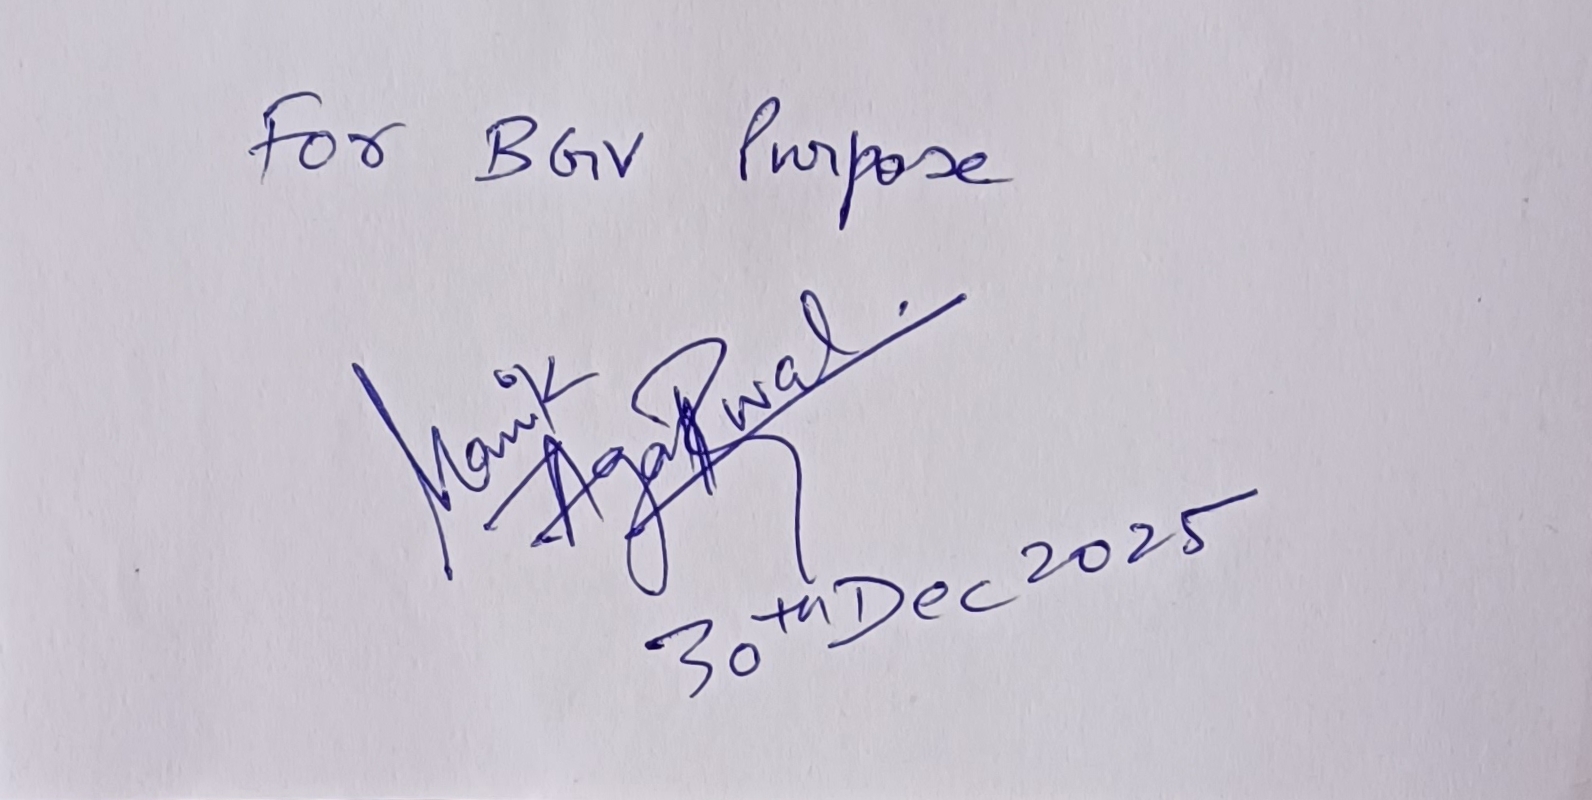 For BGV Purpose
Manik
Agarwal.
30th Dec 2025